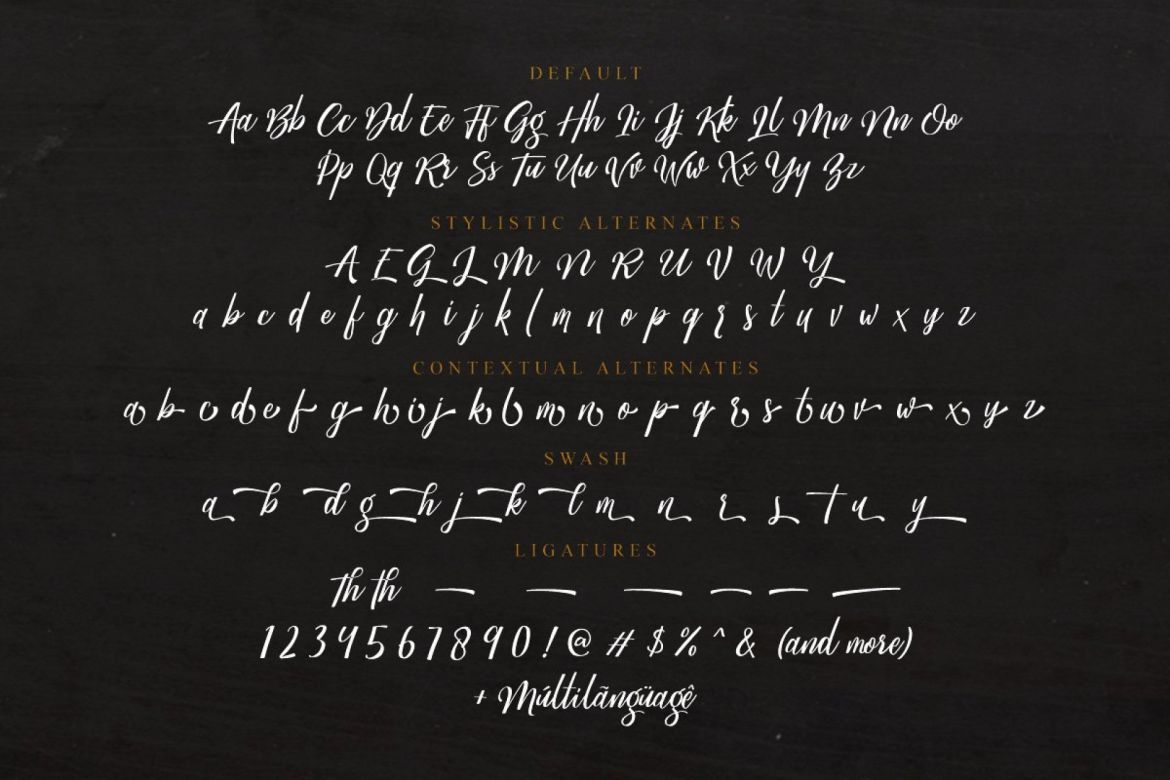 DEFAULT
Aa Bb Cc Dd Ee Ff Gg Hh Ii Jj Kk Ll Mm Nn Oo
Pp Qq Rr Ss Tt Uu Vv Ww Xx Yy Zz
STYLISTIC ALTERNATES
A E G L M N R U V W Y
a b c d e f g h i j k l m n o p q r s t u v w x y z
CONTEXTUAL ALTERNATES
a b c d e f g h i j k l m n o p q r s t u v w x y z
SWASH
a b d g h j k l m n r s t u y
LIGATURES
Th th
1 2 3 4 5 6 7 8 9 0 ! @ # $ % ^ & (and more)
+ Múltilãngüagê